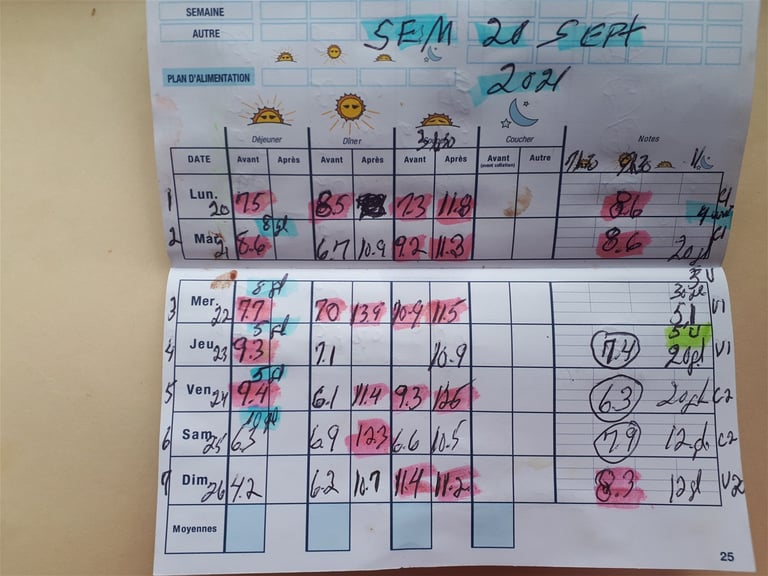 SEMAINE
AUTRE
SEM 20 SEPT
2021
PLAN D'ALIMENTATION
Déjeuner Dîner Coucher Notes
DATE Avant Après Avant Après Avant Après Avant (avant collation) Autre
1 Lun. 20 7.5 8.5 7.3 11.8 8.6 C1
8 gl
2 Mar. 21 8.6 6.7 10.9 9.2 11.3 8.6 20 gl C1
3 U
8 gl
3 Mer. 22 7.7 7.0 13.9 10.9 11.5 5.1 V1
5 gl 5 U
4 Jeu 23 9.3 7.1 10.9 7.4 20 gl V1
5 gl
5 Ven 24 9.4 6.1 11.4 9.3 12.6 6.3 20 gl C2
10 gl
6 Sam 25 6.3 6.9 12.3 6.6 10.5 7.9 12 gl C2
7 Dim 26 4.2 6.2 10.7 11.4 11.2 8.3 12 gl
Moyennes
25